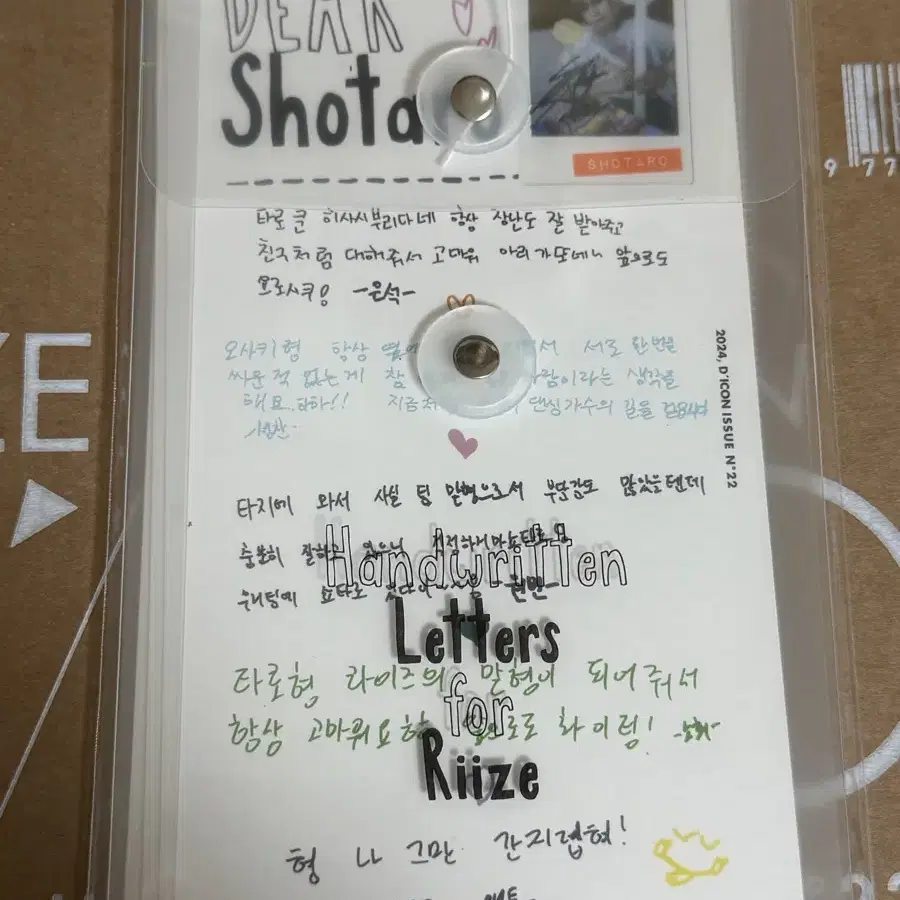 DEAR
Shota
SHOTARO
타로 큰 히사시부리다네 항상 장난도 잘 받아주고
친구처럼 대해줘서 고마워 아리가또네~ 앞으로도
요로시쿠! -은석-
오사키형 항상 서로 한번을
싸운 적 없는게 참 사람이라는 생각을
해요 하하!! 지금처 댄싱가수의 길을
타지에 와서 사실 팀 맏형으로서 부담감도 많았을텐데
충분히 잘하고 있으니 걱정하지마
우리팀에 쇼타로 -원빈-
타로형 라이즈의 맏형이 되어줘서
항상 고마워요 앞으로도 화이팅!
형 나 그만 간지럽혀!
Handwritten
Letters
for
Riize
2024, D'ICON ISSUE N°22
ZE
9 77